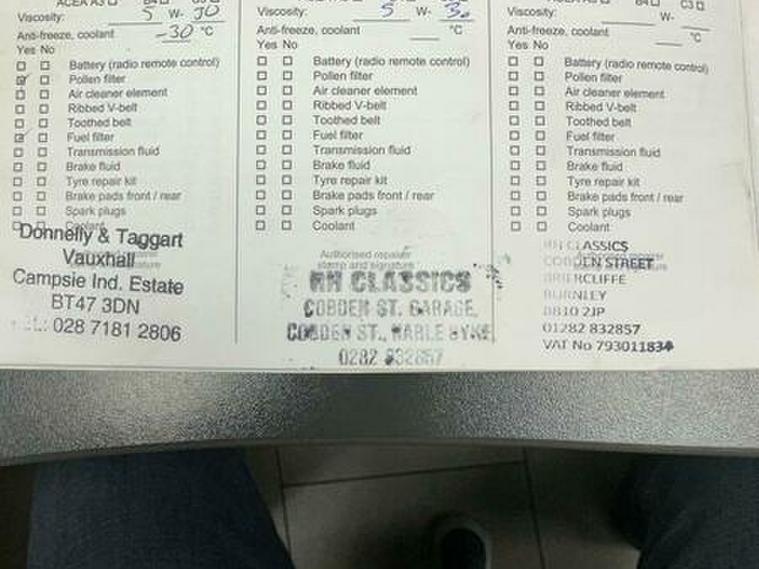 ACEA A3
Viscosity: 5 W- 30
Anti-freeze, coolant -30 °C
Yes No
Battery (radio remote control)
Pollen filter
Air cleaner element
Ribbed V-belt
Toothed belt
Fuel filter
Transmission fluid
Brake fluid
Tyre repair kit
Brake pads front / rear
Spark plugs
Coolant
Donnelly & Taggart
Vauxhall
Campsie Ind. Estate
BT47 3DN
028 7181 2806
Viscosity: 5 W- 30
Anti-freeze, coolant °C
Yes No
Battery (radio remote control)
Pollen filter
Air cleaner element
Ribbed V-belt
Toothed belt
Fuel filter
Transmission fluid
Brake fluid
Tyre repair kit
Brake pads front / rear
Spark plugs
Coolant
Authorised repairer
stamp and signature
RH CLASSICS
COBDEN ST. GARAGE,
COBDEN ST.,
0282 832857
C3
Viscosity: W-
Anti-freeze, coolant °C
Yes No
Battery (radio remote control)
Pollen filter
Air cleaner element
Ribbed V-belt
Toothed belt
Fuel filter
Transmission fluid
Brake fluid
Tyre repair kit
Brake pads front / rear
Spark plugs
Coolant
RH CLASSICS
COBDEN STREET
BRIERCLIFFE
BURNLEY
BB10 2JP
01282 832857
VAT No 793011834